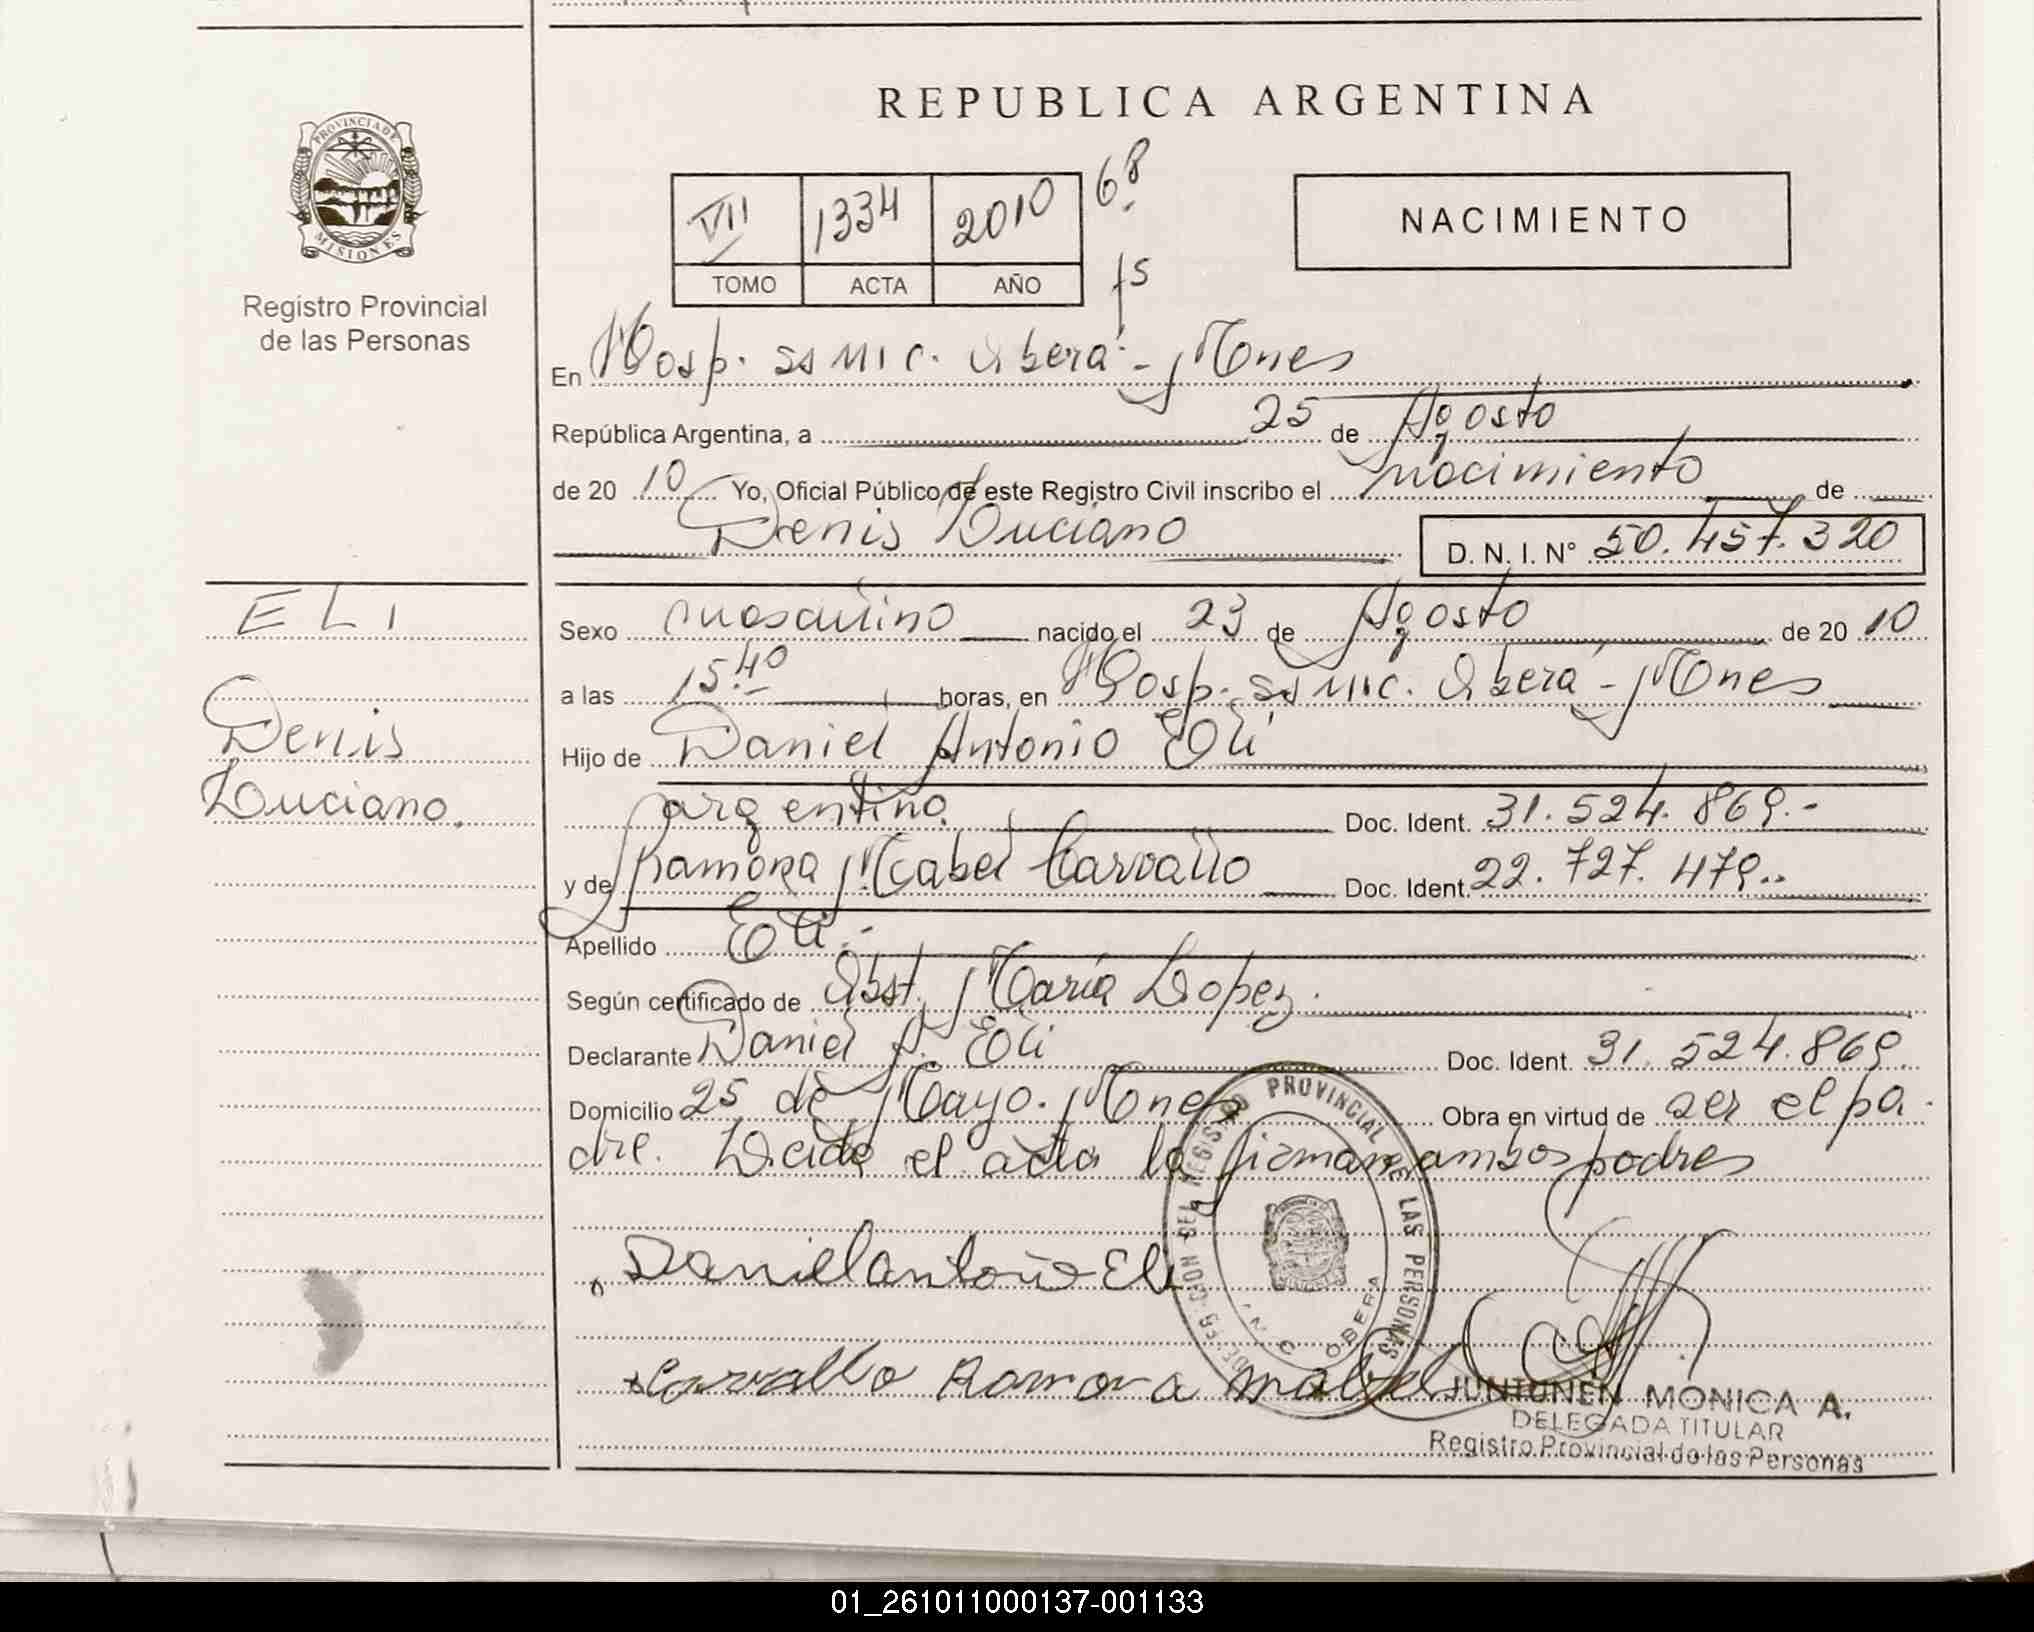 REPUBLICA ARGENTINA
PROVINCIA DE
MISIONES
Registro Provincial
de las Personas
VII 1334 2010 68
TOMO ACTA AÑO fs
NACIMIENTO
En Hosp. SSMIC. Oberá - Mnes
República Argentina, a 25 de Agosto
de 20 10 Yo, Oficial Público de este Registro Civil inscribo el nacimiento de
Denis Luciano D. N. I. N° 50.457.320
ELI
Denis
Luciano.
Sexo masculino nacido el 23 de Agosto de 20 10
a las 15.40 horas, en Hosp. SSMIC. Oberá - Mnes
Hijo de Daniel Antonio Eli
argentino. Doc. Ident. 31.524.869.-
y de Ramona Mabel Carvallo Doc. Ident. 22.727.479..
Apellido Eli.-
Según certificado de Obst. María Lopez.
Declarante Daniel A. Eli Doc. Ident. 31.524.869.
Domicilio 25 de Mayo. Mnes Obra en virtud de ser el pa-
dre. Leida el acta la firman ambos padres
Daniel antonio Eli
Carvallo Ramona Mabel
DELEGACION DEL REGISTRO PROVINCIAL DE LAS PERSONAS
OBERA
JUNTUNEN MONICA A.
DELEGADA TITULAR
Registro Provincial de las Personas
01_261011000137-001133